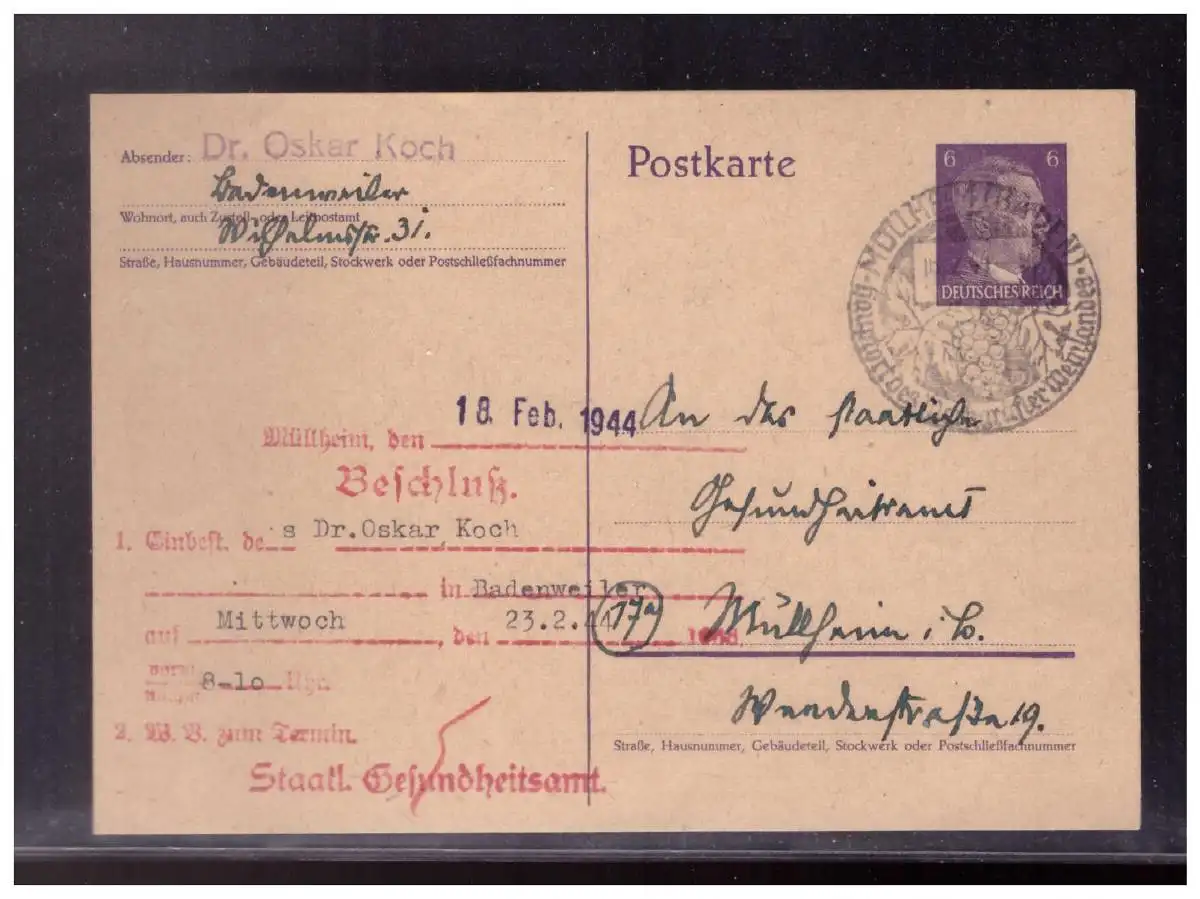 Absender: Dr. Oskar Koch
Badenweiler
Wohnort, auch Zustell- oder Leitpostamt
Wilhelmstr. 31.
Straße, Hausnummer, Gebäudeteil, Stockwerk oder Postschließfachnummer
Postkarte
6 6
DEUTSCHES REICH
MÜLLHEIM (BADEN)
18. Feb. 1944
Müllheim, den
Beschluß.
1. Einbest. des Dr.Oskar Koch
in Badenweiler
auf Mittwoch, den 23.2.44
8-10 Uhr
2. W. V. zum Termin.
Staatl. Gesundheitsamt.
An das staatliche
Gesundheitsamt
17a Müllheim i. B.
Werderstraße 19.
Straße, Hausnummer, Gebäudeteil, Stockwerk oder Postschließfachnummer